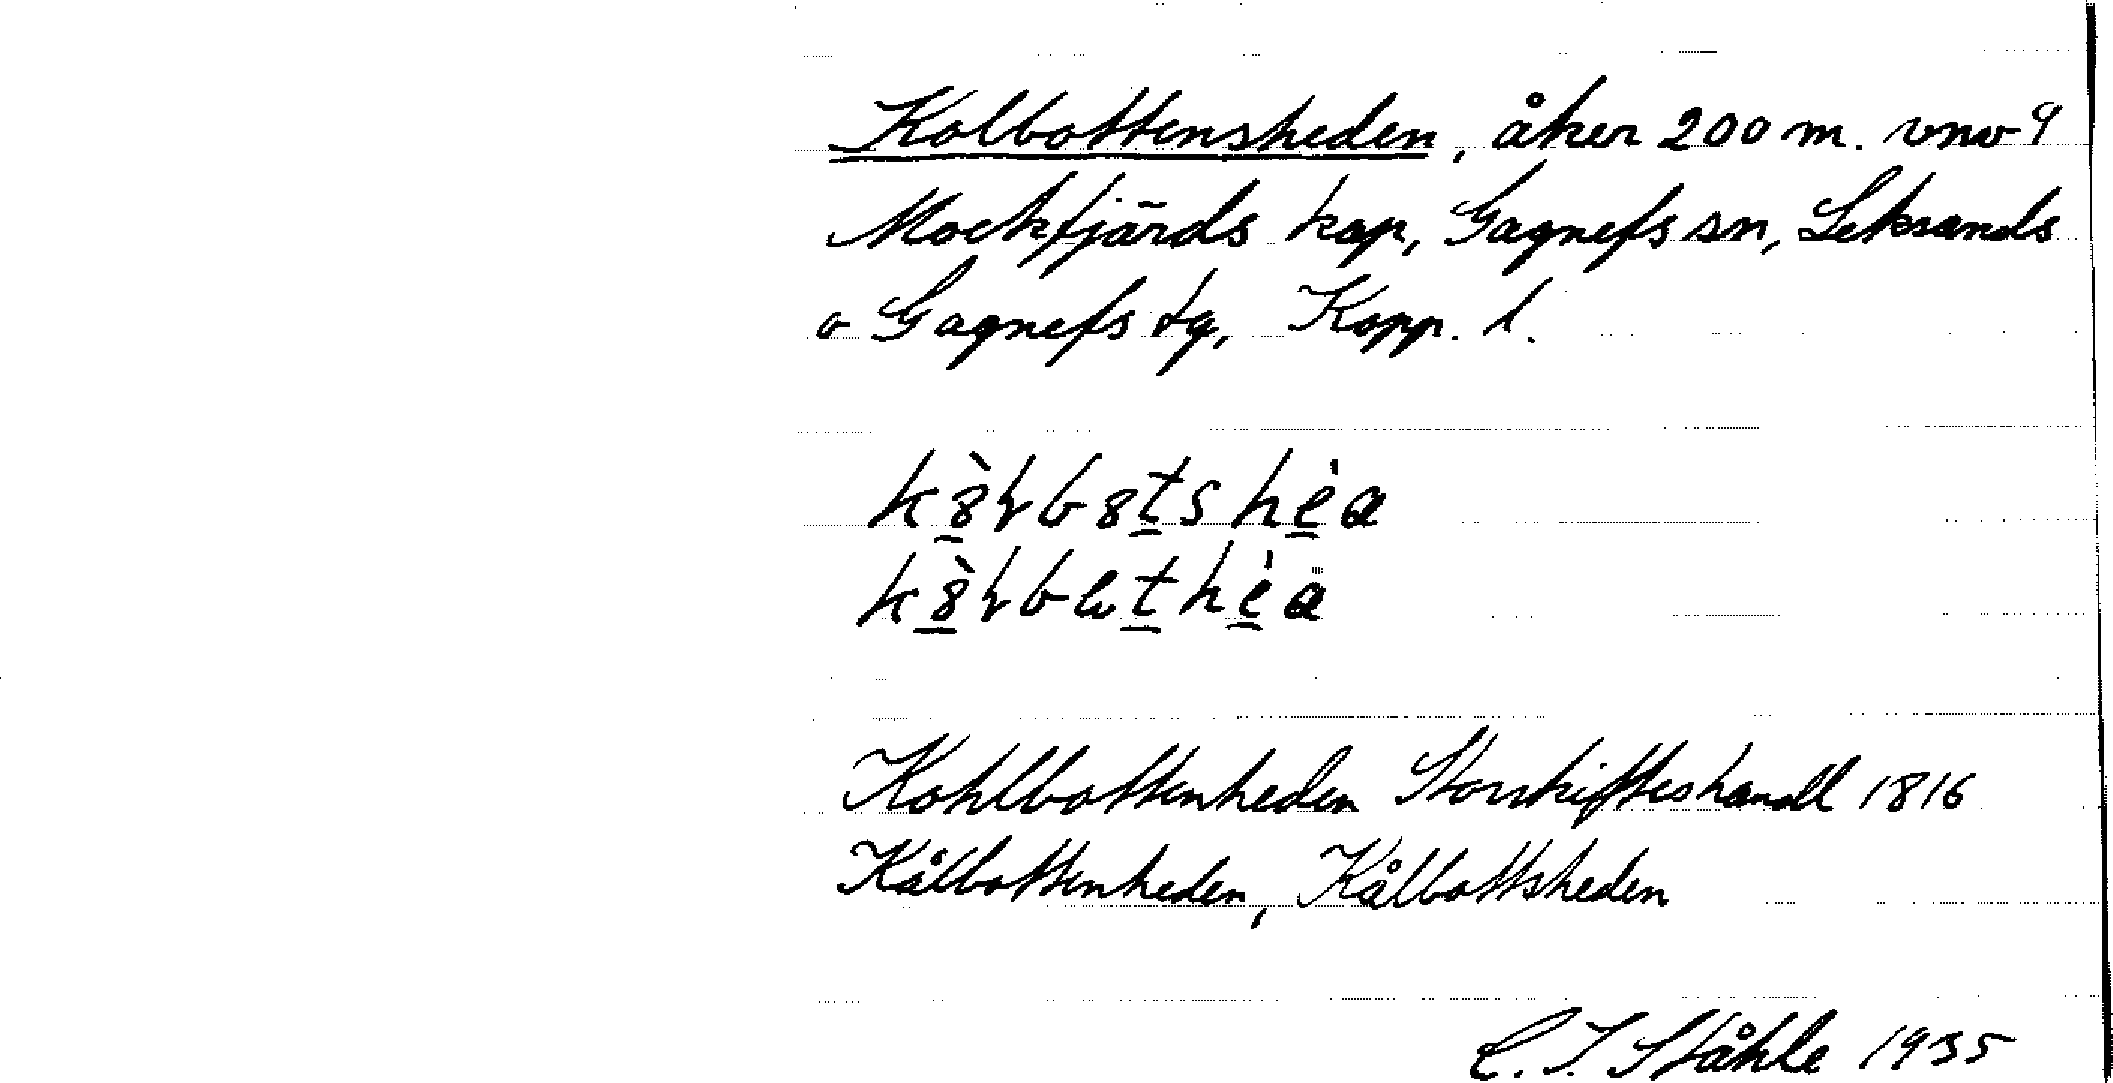 Kolbottensheden, åker 200 m. vnv
Mockfjärds kap, Gagnefs sn, Leksands
o Gagnefs tg, Kopp. l.
Kohlbottenheden Storskifteshandl 1816
Kålbottenheden, Kålbottsheden
C. I. Ståhle 1935